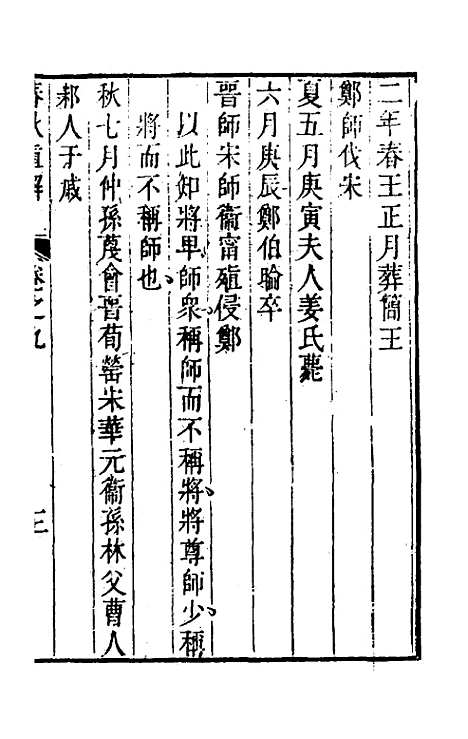 二年春王正月葬簡王
鄭師伐宋
夏五月庚寅夫人姜氏薨
六月庚辰鄭伯睔卒
晉師宋師衞甯殖侵鄭
以此知將卑師衆、稱師而不稱將、將尊師少、稱
將而不稱師也、
秋七月仲孫蔑會晉荀罃宋華元衞孫林父曹人
邾人于戚
卷之九
三